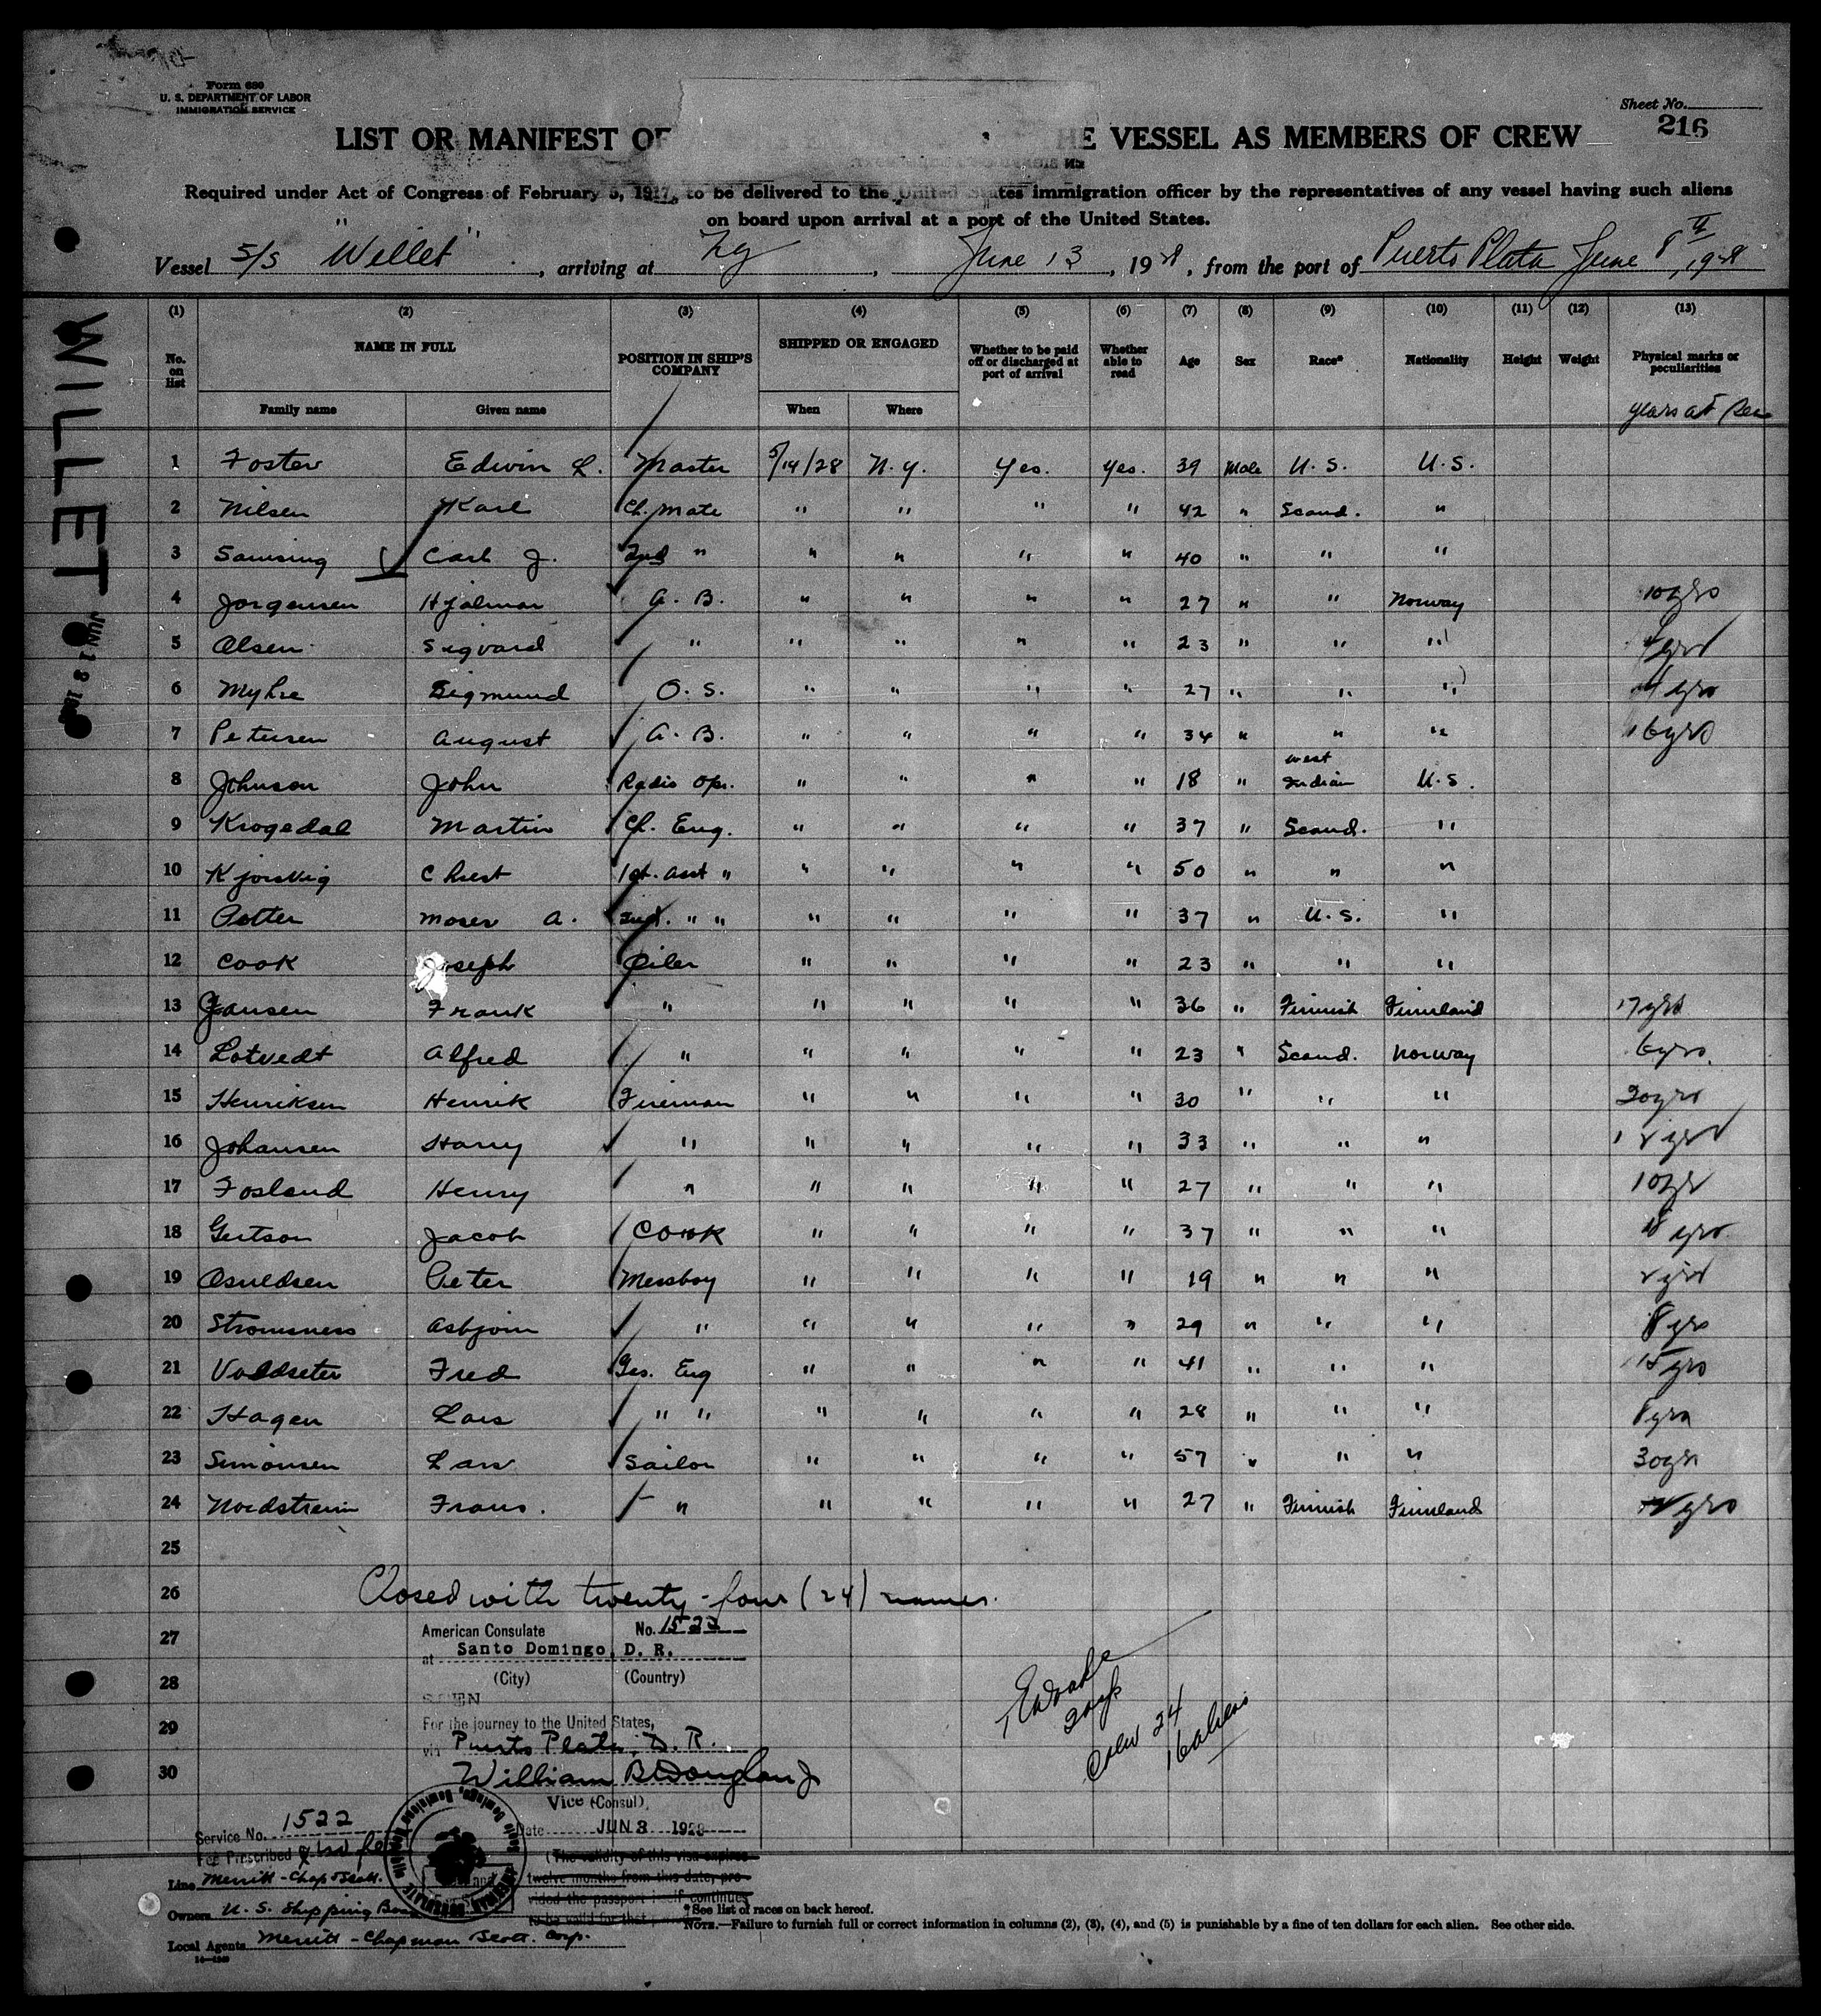 Form 680
U. S. DEPARTMENT OF LABOR
IMMIGRATION SERVICE
Sheet No.
216
LIST OR MANIFEST OF HE VESSEL AS MEMBERS OF CREW
Required under Act of Congress of February 5, 1917, to be delivered to the United States immigration officer by the representatives of any vessel having such aliens
on board upon arrival at a port of the United States.
Vessel S/S "Willet", arriving at NY, June 13, 1928, from the port of Puerto Plata June 8th, 1928
WILLET
(1) (2) (3) (4) (5) (6) (7) (8) (9) (10) (11) (12) (13)
No. on list NAME IN FULL POSITION IN SHIP'S COMPANY SHIPPED OR ENGAGED Whether to be paid off or discharged at port of arrival Whether able to read Age Sex Race* Nationality Height Weight Physical marks or peculiarities
Family name Given name When Where years at sea
1 Foster Edwin L. Master 5/14/28 N.Y. Yes. Yes. 39 Male U.S. U.S.
2 Nilsen Karl Ch. Mate " " " " 42 " Scand. "
3 Samsing Carl J. 2nd " " " " " 40 " " "
4 Jorgensen Hjalmar A.B. " " " " 27 " " Norway 10 yrs
5 Olsen Sigvard " " " " " 23 " " " yrs
6 Myhre Sigmund O.S. " " " " 27 " " " 4 yrs
7 Petersen August A.B. " " " " 34 " " " 16 yrs
8 Johnson John Radio Opr. " " " " 18 " West Indian U.S.
9 Krogedal Martin Ch. Eng. " " " " 37 " Scand. "
10 Kjorsvig Chrest 1st. asst " " " " " 50 " " "
11 Potter Moses A. 2nd. " " " " " " 37 " U.S. "
12 Cook Joseph Oiler " " " " 23 " " "
13 Jansen Frank " " " " " 36 " Finnish Finnland 17 yrs
14 Lotvedt Alfred " " " " " 23 " Scand. Norway 6 yrs.
15 Henriksen Henrik Fireman " " " " 30 " " " 20 yrs
16 Johansen Harry " " " " " 33 " " " yrs
17 Fosland Henry " " " " " 27 " " " 10 yr
18 Gertson Jacob Cook " " " " 37 " " " yrs.
19 Osuldsen Peter Messboy " " " " 19 " " " yrs
20 Stromsness Asbjorn " " " " " 29 " " " 8 yrs
21 Voldseter Fred Ges. Eng " " " " 41 " " " 15 yrs
22 Hagen Lars " " " " " " 28 " " " 8 yrs
23 Simonsen Lars Sailor " " " " 57 " " " 30 yrs
24 Nordstrem Frans. " " " " " 27 " Finnish Finnland yrs
25
26 Closed with twenty-four (24) names.
27
28
29
30
American Consulate No. 1522
at Santo Domingo, D. R.
(City) (Country)
SEEN
For the journey to the United States,
via Puerto Plata, D. R.
William B Douglas Jr
Vice (Consul)
Date JUN 8 1928
(The validity of this visa expires
twelve months from this date, pro-
vided the passport itself continues
to be valid for that
Crew 24
16 aliens
Service No. 1522
Fee Prescribed
Line Merritt-Chap & Scott.
Owners U. S. Shipping
Local Agents Merritt-Chapman Scott. Corp.
*See list of races on back hereof.
NOTE.—Failure to furnish full or correct information in columns (2), (3), (4), and (5) is punishable by a fine of ten dollars for each alien. See other side.